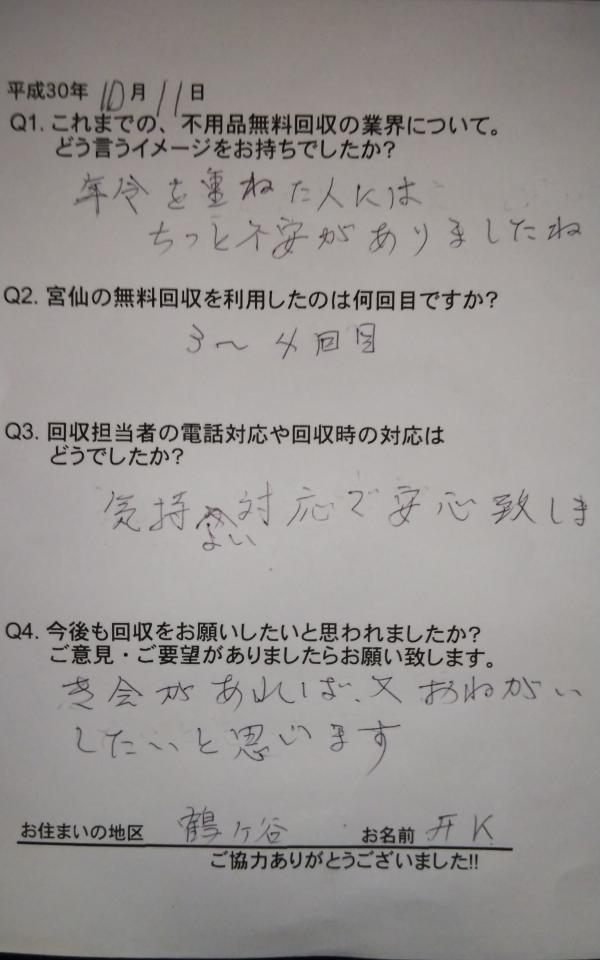 平成30年 10月 11日
Q1. これまでの、不用品無料回収の業界について。
どう言うイメージをお持ちでしたか?
年令を重ねた人には
ちっと不安がありましたね
Q2. 宮仙の無料回収を利用したのは何回目ですか?
3〜4回目
Q3. 回収担当者の電話対応や回収時の対応は
どうでしたか?
気持 対応で安心致しま
よい
Q4. 今後も回収をお願いしたいと思われましたか?
ご意見・ご要望がありましたらお願い致します。
き会があれば、又おねがい
したいと思います
お住まいの地区 鶴ヶ谷 お名前 K
ご協力ありがとうございました!!